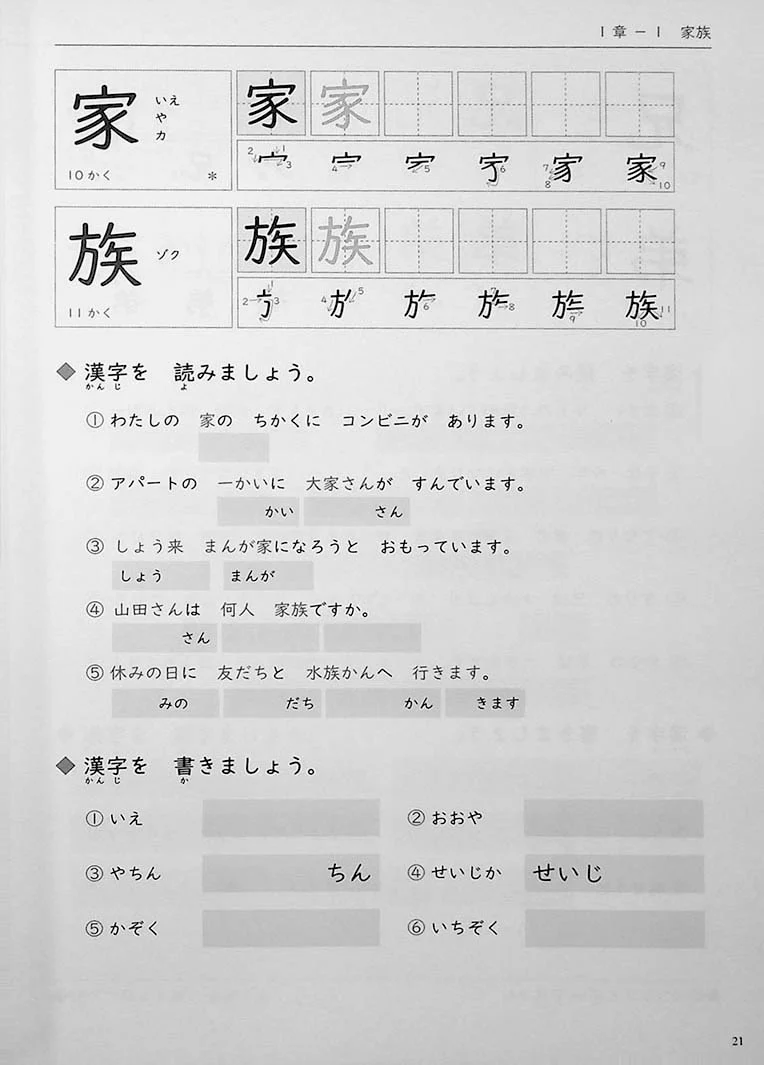 1章－1 家族
家 いえ や カ
10かく *
家 家
2 1 3 4 5 6 7 8 9 10
族 ゾク
11かく
族 族
1 2 3 4 5 6 7 8 9 10 11
◆ 漢字を 読みましょう。
かんじ よ
① わたしの 家の ちかくに コンビニが あります。
② アパートの 一かいに 大家さんが すんでいます。
かい さん
③ しょう来 まんが家になろうと おもっています。
しょう まんが
④ 山田さんは 何人 家族ですか。
さん
⑤ 休みの日に 友だちと 水族かんへ 行きます。
みの だち かん きます
◆ 漢字を 書きましょう。
かんじ か
① いえ ② おおや
③ やちん ちん ④ せいじか せいじ
⑤ かぞく ⑥ いちぞく
21